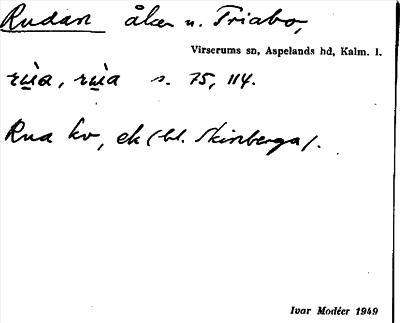 Rudan åker u. Triabo,
Virserums sn, Aspelands hd, Kalm. l.
rùa, rùa s. 75, 114.
Rua kv, ek (bl. Skinberga).
Ivar Modéer 1949